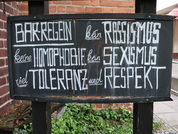 BARREGELN kein RASSISMUS
keine HOMOPHOBIE kein SEXISMUS
viel TOLERANZ und RESPEKT